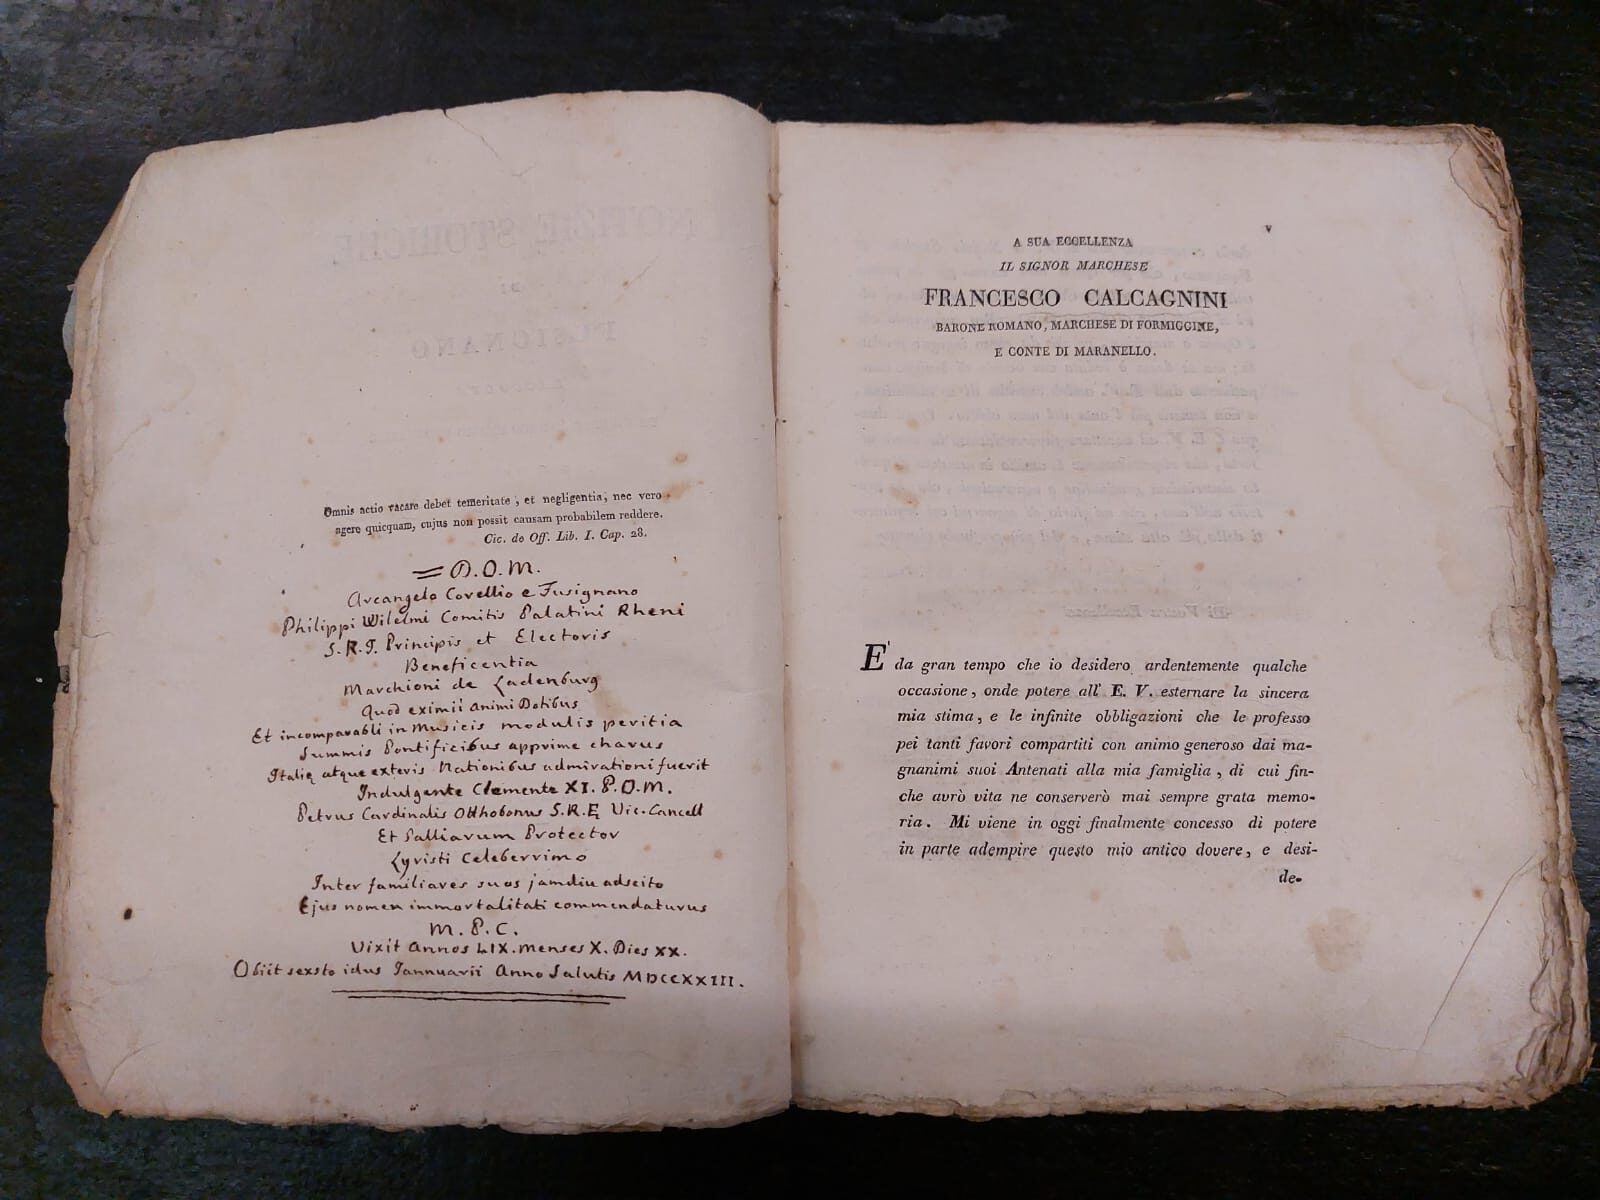 Omnis actio vacare debet temeritate, et negligentia, nec vero
agere quicquam, cujus non possit causam probabilem reddere.
Cic. de Off. Lib. I. Cap. 28.
= D.O.M.
Arcangelo Corellio e Fusignano
Philippi Wilelmi Comitis Palatini Rheni
S.R.I. Principis et Electoris
Beneficentia
Marchioni de Ladenburg
Quod eximii Animi Dotibus
Et incomparabli in Musicis modulis peritia
Summis Pontificibus apprime charus
Italię atque exteris Nationibus admirationi fuerit
Indulgente Clemente XI. P.O.M.
Petrus Cardinalis Otthobonus S.R.E Vic. Cancell
Et Galliarum Protector
Lyristi Celeberrimo
Inter familiares suos jamdiu adscito
Ejus nomen immortalitati commendaturus
M.P.C.
Vixit Annos LIX. Menses X. Dies XX.
Obiit sexsto idus Jannuarii Anno Salutis MDCCXXIII.
V
A SUA ECCELLENZA
IL SIGNOR MARCHESE
FRANCESCO CALCAGNINI
BARONE ROMANO, MARCHESE DI FORMIGGINE,
E CONTE DI MARANELLO.
E' da gran tempo che io desidero ardentemente qualche
occasione, onde potere all' E. V. esternare la sincera
mia stima, e le infinite obbligazioni che le professo
pei tanti favori compartiti con animo generoso dai ma-
gnanimi suoi Antenati alla mia famiglia, di cui fin-
che avrò vita ne conserverò mai sempre grata memo-
ria. Mi viene in oggi finalmente concesso di potere
in parte adempire questo mio antico dovere, e desi-
de-